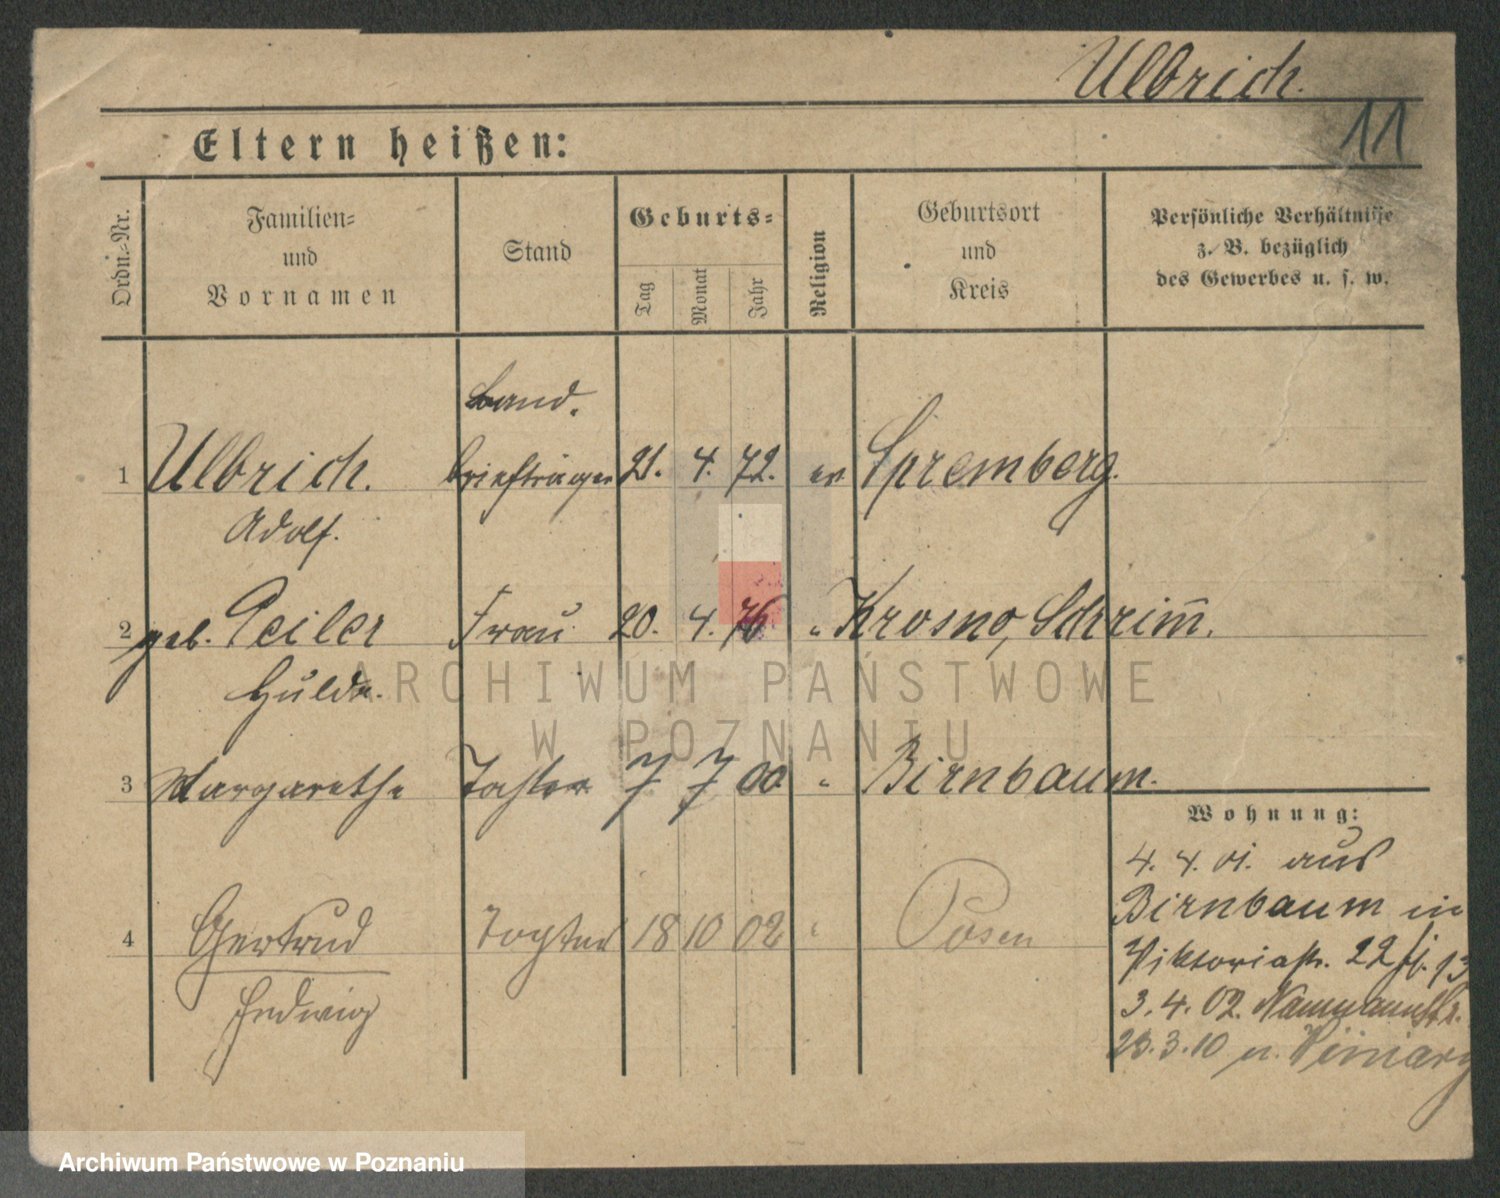 Ulbrich.
11
Eltern heißen:
Ordn.-Nr.
Familien-
und
Vornamen
Stand
Geburts-
Tag
Monat
Jahr
Religion
Geburtsort
und
Kreis
Persönliche Verhältnisse
z. B. bezüglich
des Gewerbes u. s. w.
Land.
1 Ulbrich. briefträger 21. 4. 72. ev Spremberg.
Adolf.
2 geb. Peiler Frau 20. 4. 76 " Krosno, Schrim̄.
Hulda.
3 Margarethe Tochter 7 7 00 " Birnbaum.
4 Gertrud Tochter 18 10 02 " Posen
Hedwig
Wohnung:
4. 4. 01. aus
Birnbaum in
Viktoriastr. 22
3. 4. 02. Naumannstr.
23. 3. 10 n.
ARCHIWUM PAŃSTWOWE
W POZNANIU
Archiwum Państwowe w Poznaniu